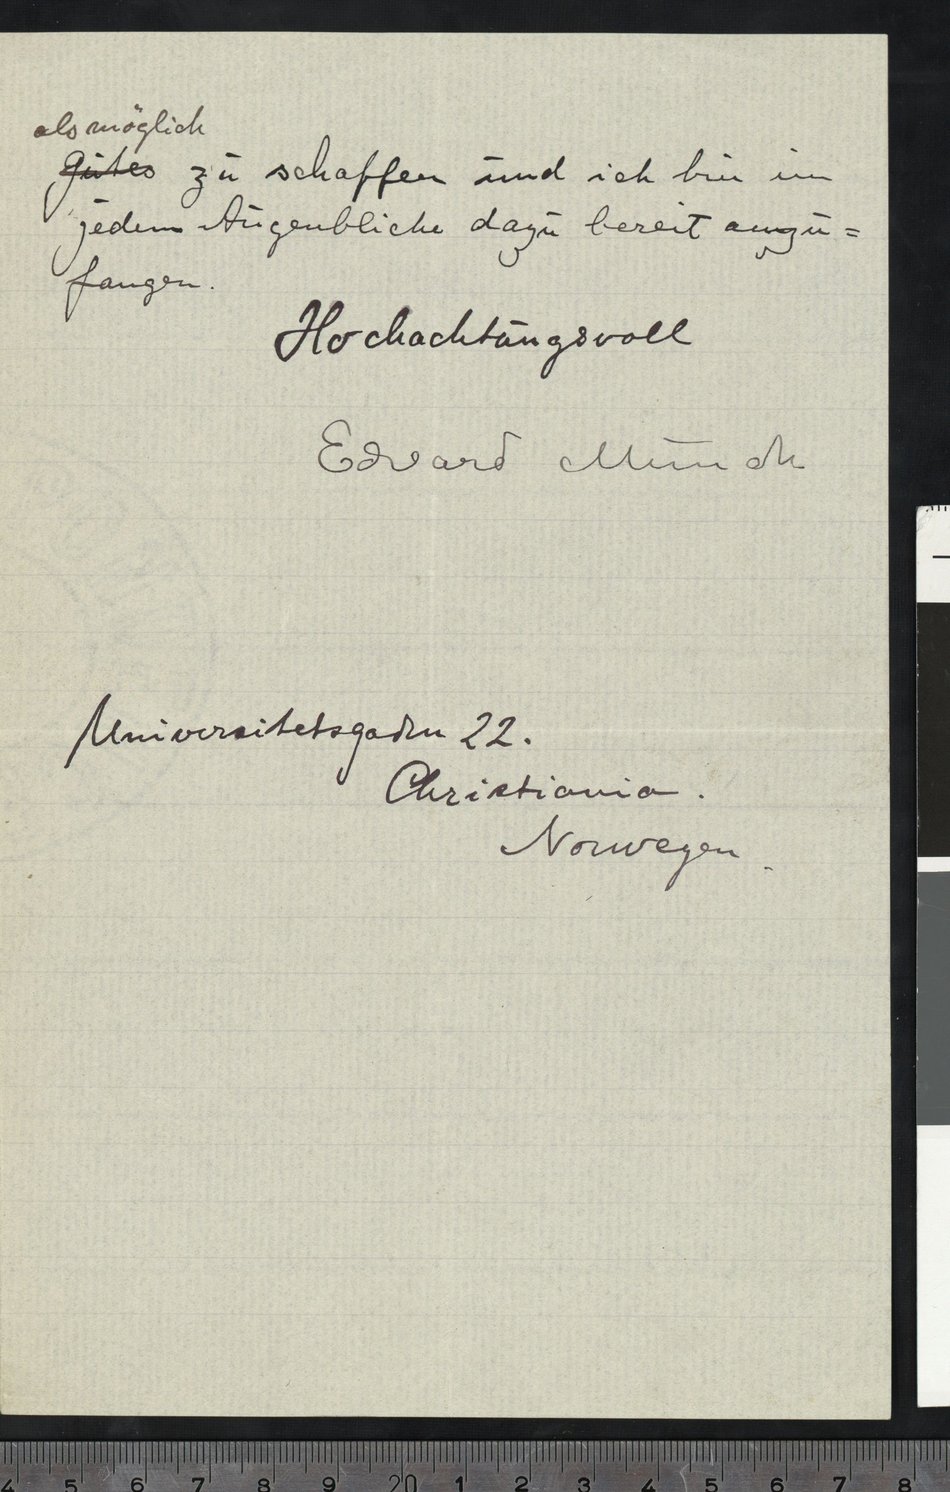 als möglich
gutes zu schaffen und ich bin im
jedem Augenblicke dazu bereit anzu=
fangen.
Hochachtungsvoll
Edvard Munch
Universitetsgaden 22.
Christiania.
Norwegen.
4 5 6 7 8 9 20 1 2 3 4 5 6 7 8